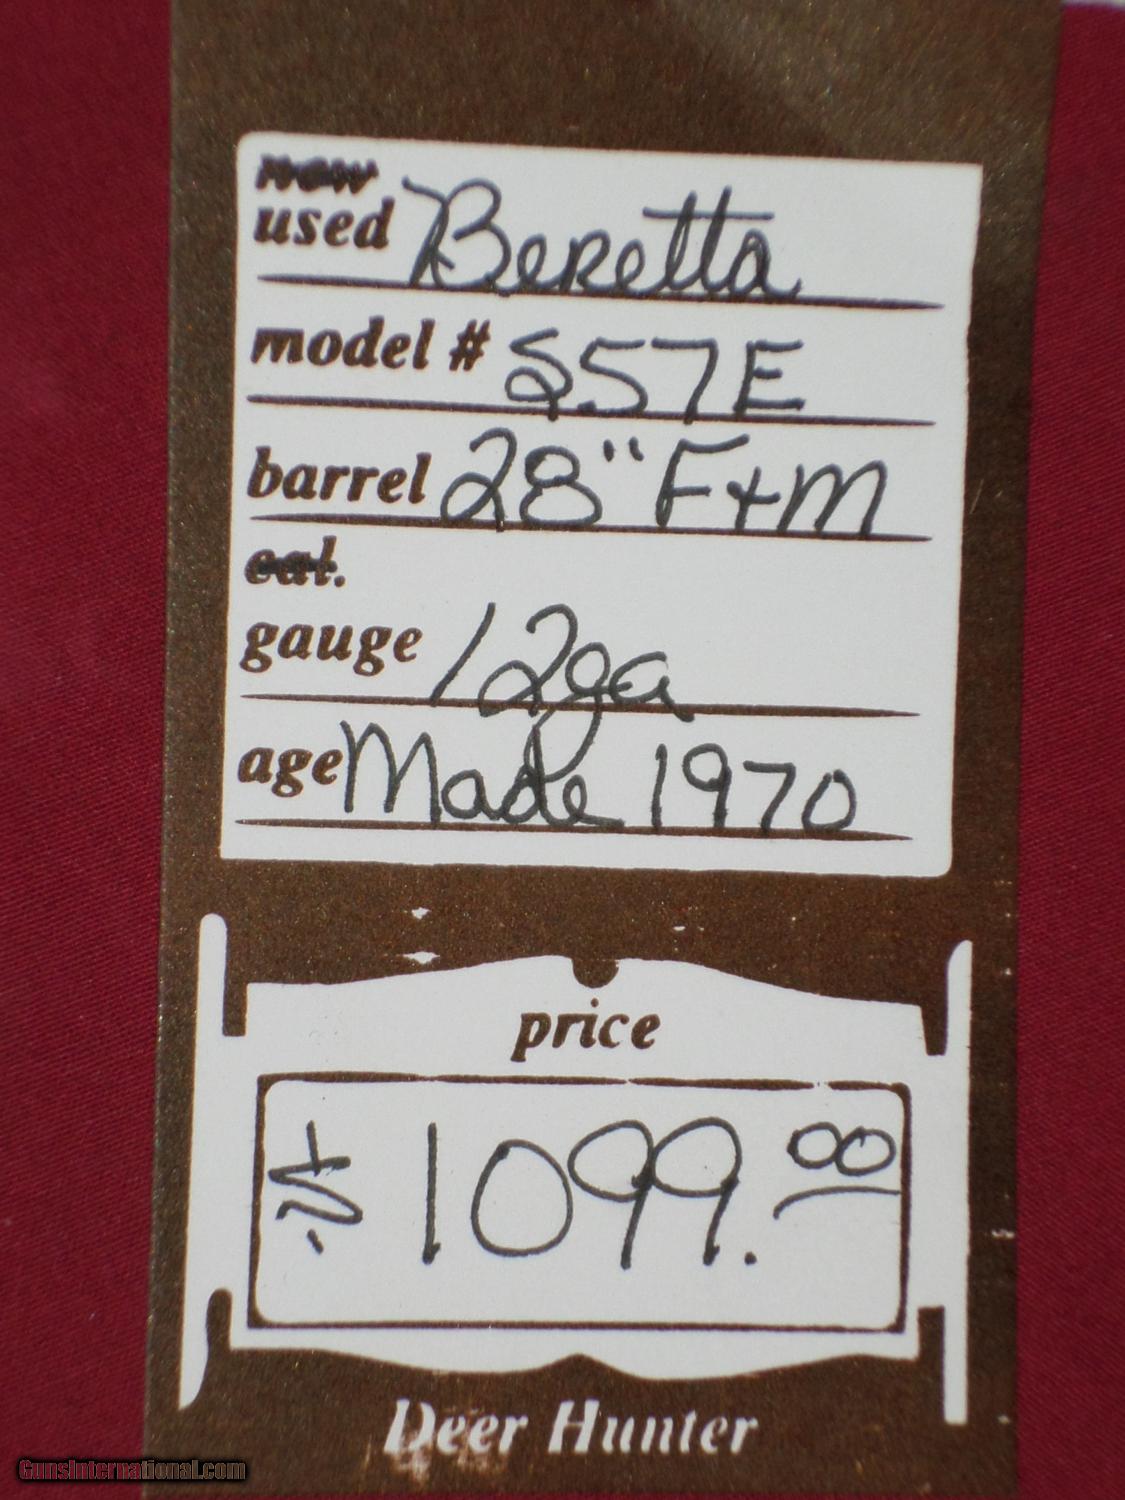 new
used Beretta
model # S57E
barrel 28" F+M
cal.
gauge 12ga
age Made 1970
price
$1099.00
Deer Hunter
GunsInternational.com